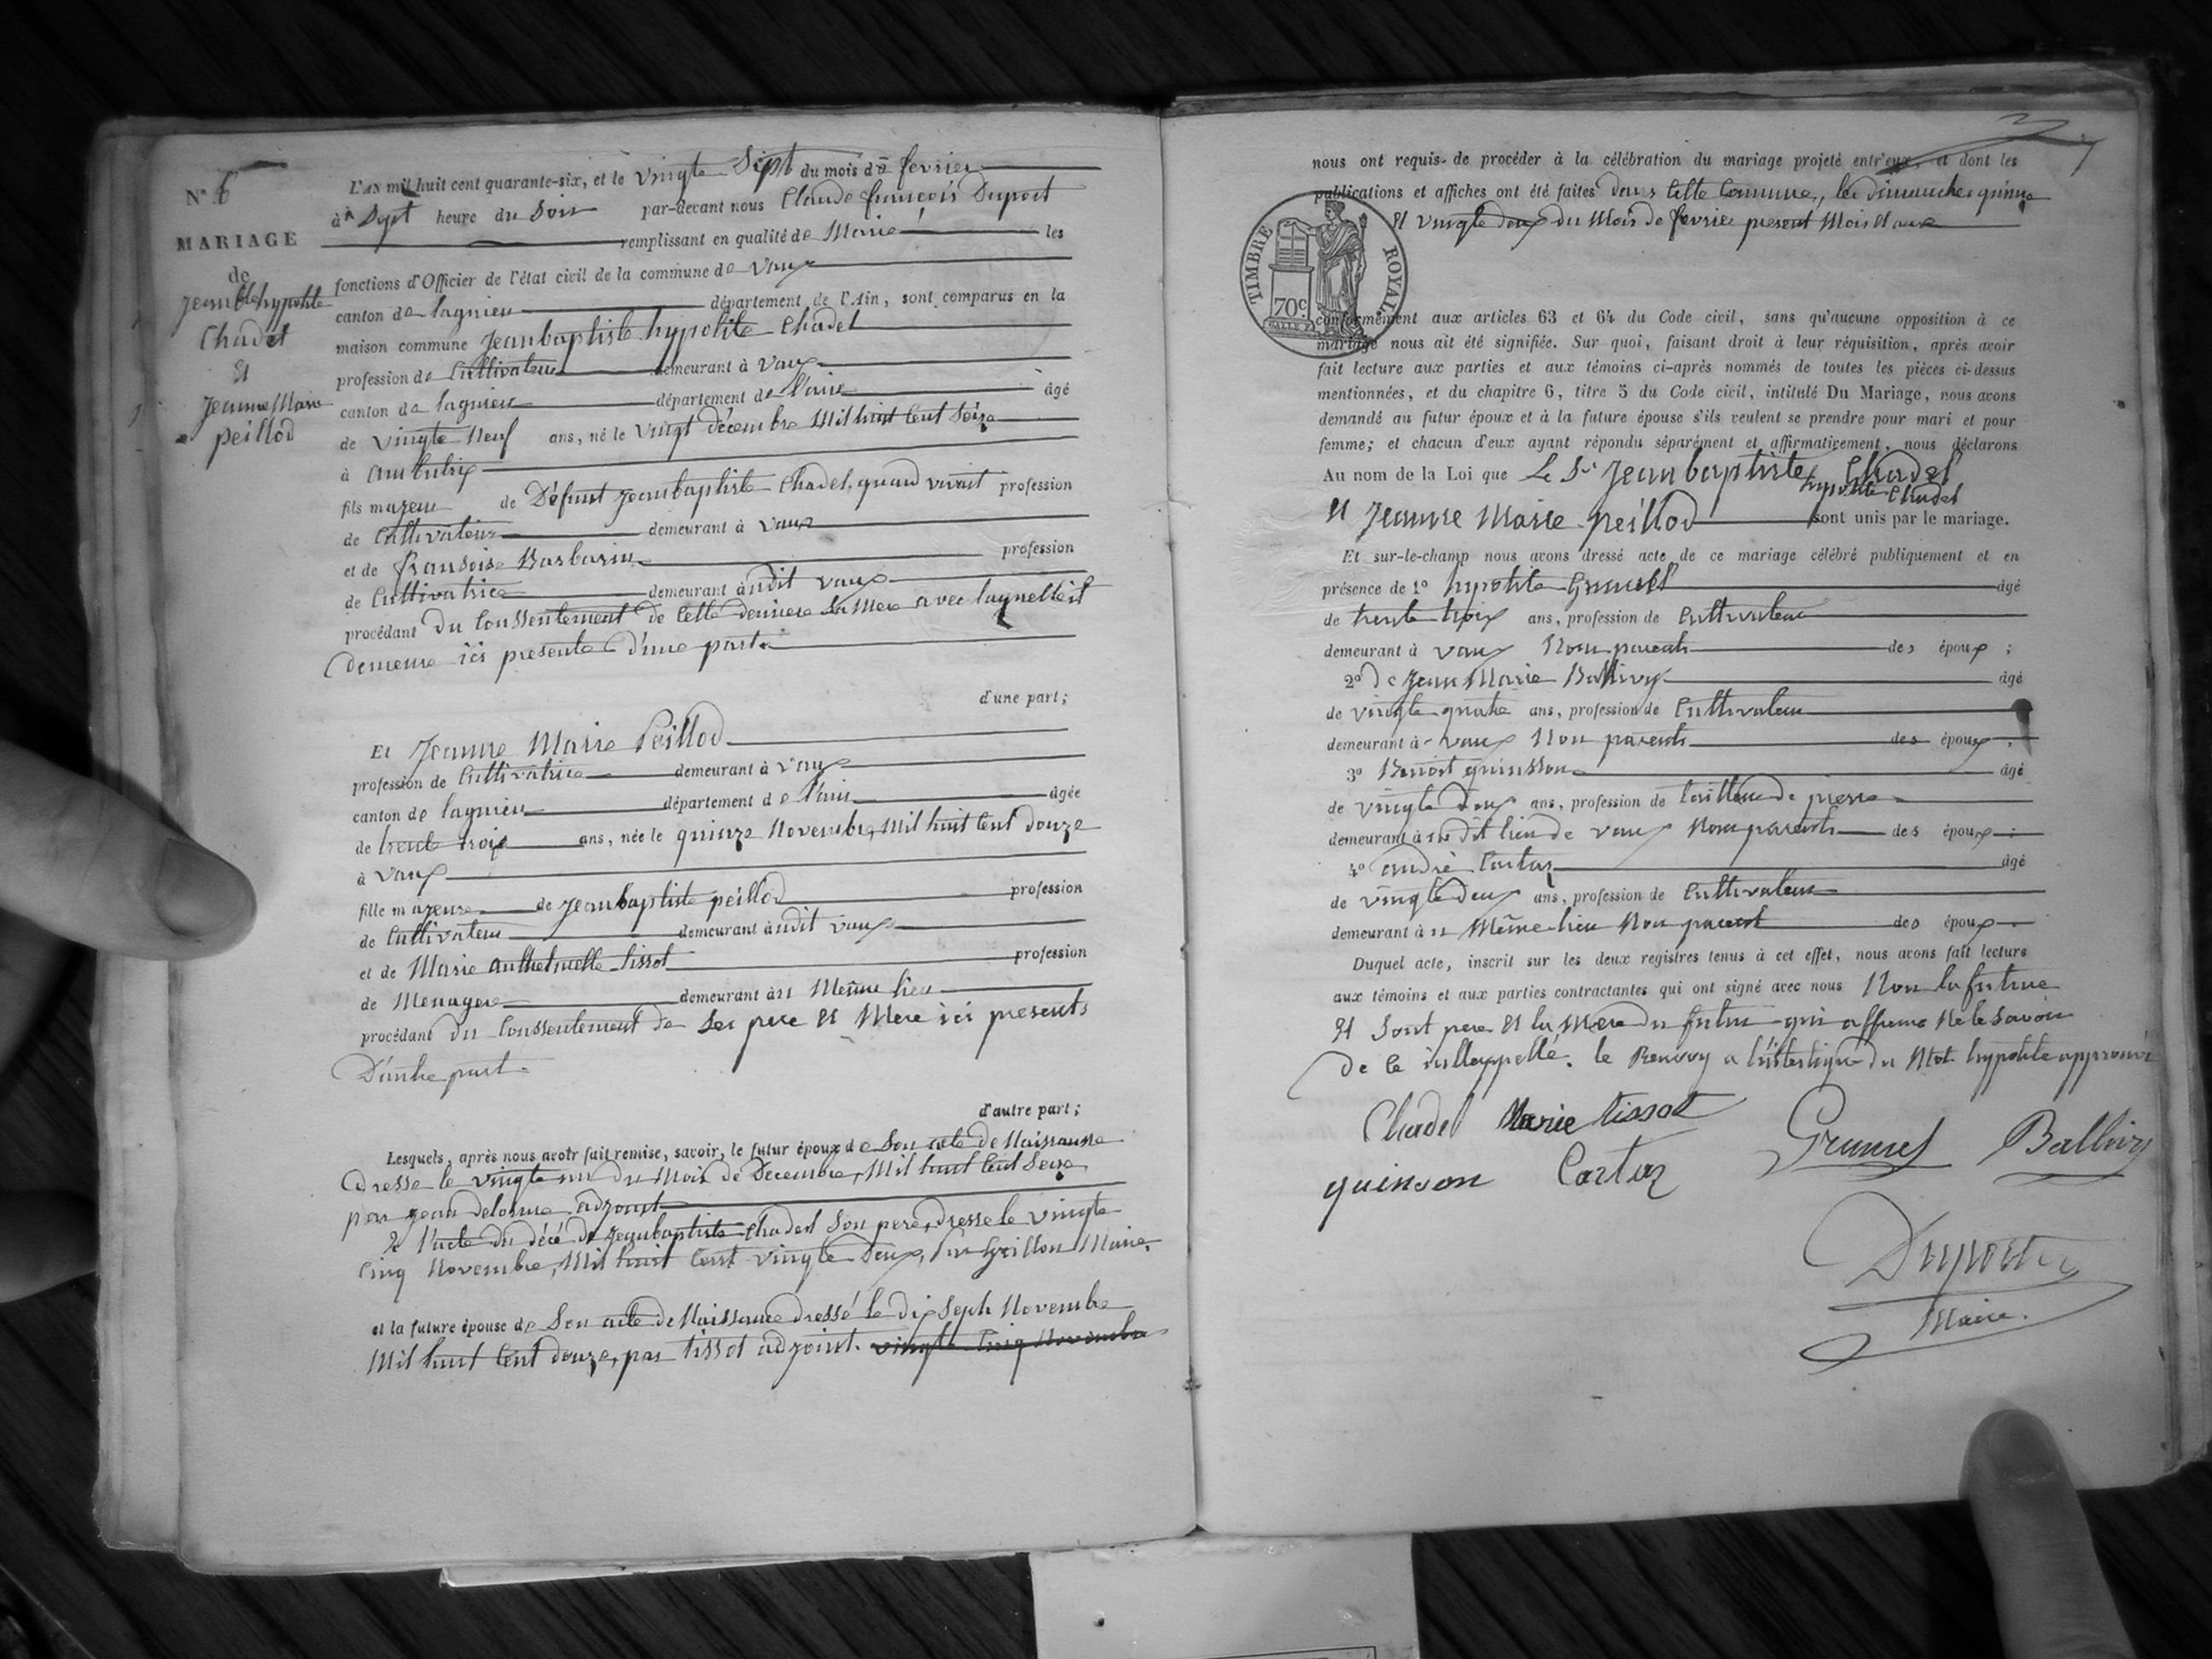 N° 6
MARIAGE
de
Jean Bte hypolite
Chadel
Et
Jeanne Marie
peillod
L'AN mil huit cent quarante-six, et le vingte Sept du mois de fevrier
à Sept heure du Soir par-devant nous Claude françois Duport
remplissant en qualité de Maire les
fonctions d'Officier de l'état civil de la commune de Vaux
canton de lagnieu département de l'Ain, sont comparus en la
maison commune Jean baptiste hypolite Chadel
profession de Cultivateur demeurant à Vaux
canton de lagnieu département de l'ain âgé
de vingte Neuf ans, né le vingt décembre Mil huit Cent Seize
à ambutrix
fils majeur de Défunt Jean baptiste Chadel, quand vivait profession
de Cultivateur demeurant à Vaux
et de fransoise Barbarin profession
de Cultivatrice demeurant à udit vaux
procédant du Conssentement de Cette derniere Sa Mere avec laquelle il
demeure ici presente D'une part.
d'une part;
Et Jeanne Marie Peillod
profession de Cultivatrice demeurant à Vaux
canton de lagnieu département de l'ain âgée
de trente trois ans, née le quinze Novembre, Mil huit Cent douze
à Vaux
fille majeure de Jean baptiste peillod profession
de Cultivateur demeurant à udit vaux
et de Marie anthelmelle tissot profession
de Menagere demeurant à u Même lieu
procédant du Conssentement de Ses pere Et Mere ici presents
D'autre part.
d'autre part;
Lesquels, après nous avoir fait remise, savoir, le futur époux de Son acte de Naissansse
dresse le vingte un du Mois de Decembre, Mil huit Cent Seize
par Jean delorme adjoint
2e l'acte du décé de Jean baptiste Chadel Son pere, dresse le vingte
Cinq Novembre, Mil huit Cent vingte Deux, Par Maire,
et la future épouse de Son acte de Naissance dressé le dix Sept Novembre
Mil huit Cent douze, par tissot adjoint. vingte Cinq Novembre
nous ont requis de procéder à la célébration du mariage projeté entr'eux, et dont les
publications et affiches ont été faites dans Cette Commune, les dimanches quinze
Et vingte deux du Mois de fevrier present Mois Et
TIMBRE ROYAL
70c
conformément aux articles 63 et 64 du Code civil, sans qu'aucune opposition à ce
mariage nous ait été signifiée. Sur quoi, faisant droit à leur réquisition, après avoir
fait lecture aux parties et aux témoins ci-après nommés de toutes les pièces ci-dessus
mentionnées, et du chapitre 6, titre 5 du Code civil, intitulé Du Mariage, nous avons
demandé au futur époux et à la future épouse s'ils veulent se prendre pour mari et pour
femme; et chacun d'eux ayant répondu séparément et affirmativement, nous déclarons
Au nom de la Loi que Le Sr Jean baptiste Chadel
hypolite Chadel
Et Jeanne Marie peillod sont unis par le mariage.
Et sur-le-champ nous avons dressé acte de ce mariage célébré publiquement et en
présence de 1° hypolite Grumel âgé
de trente trois ans, profession de Cultivateur
demeurant à vaux Non parents des époux ;
2° De Jean Marie Ballivy âgé
de vingte quatre ans, profession de Cultivateur
demeurant à vaux Non parents des époux ;
3° Benoit quinsson âgé
de vingte deux ans, profession de tailleur de pierre
demeurant à su dit lieu de vaux Non parents des époux ;
4° andré Cartaz âgé
de vingte deux ans, profession de Cultivateur
demeurant à u Même lieu Non parent des époux
Duquel acte, inscrit sur les deux registres tenus à cet effet, nous avons fait lecture
aux témoins et aux parties contractantes qui ont signé avec nous Non la future
Et Sont pere Et la Mere du futur qui affirme Ne le Savoir
De Ce le Renvoy a l'interligne du Mot hypolite approuvé
Chadel Marie tissot Grumel Ballivy
quinson Cartaz
Duport
Maire.